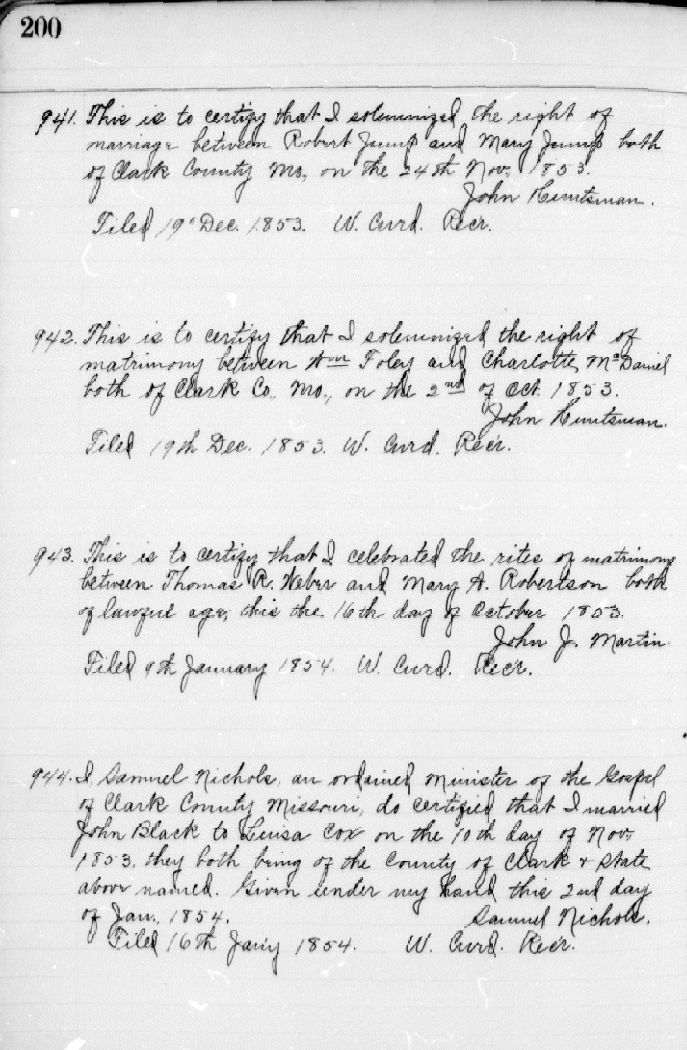 200
941. This is to certify that I solemnized the right of
marriage between Robert Jump and Mary Jump both
of Clark County Mo., on the 24th Nov, 1853.
John Huntsman.
Filed 19" Dec. 1853. W. Curd. Recr.
942. This is to certify that I solemnized the right of
matrimony between Wm Foley and Charlotte McDaniel
both of Clark Co., Mo., on the 2nd of Oct. 1853.
John Huntsman.
Filed 19th Dec. 1853. W. Curd. Rec'r.
943. This is to certify that I celebrated the rites of matrimony
between Thomas R. Weber and Mary A. Robertson both
of lawful age, this the 16th day of October 1853.
John J. Martin.
Filed 9th January 1854. W. Curd. Recr.
944. I, Samuel Nichols, an ordained Minister of the Gospel
of Clark County Missouri, do certified that I married
John Black to Luisa Cox on the 10th day of Nov.
1853, they both being of the County of Clark & State
above named. Given under my hand this 2nd day
of Jan, 1854. Samuel Nichols.
Filed 16th Jan'y 1854. W. Curd. Rec'r.